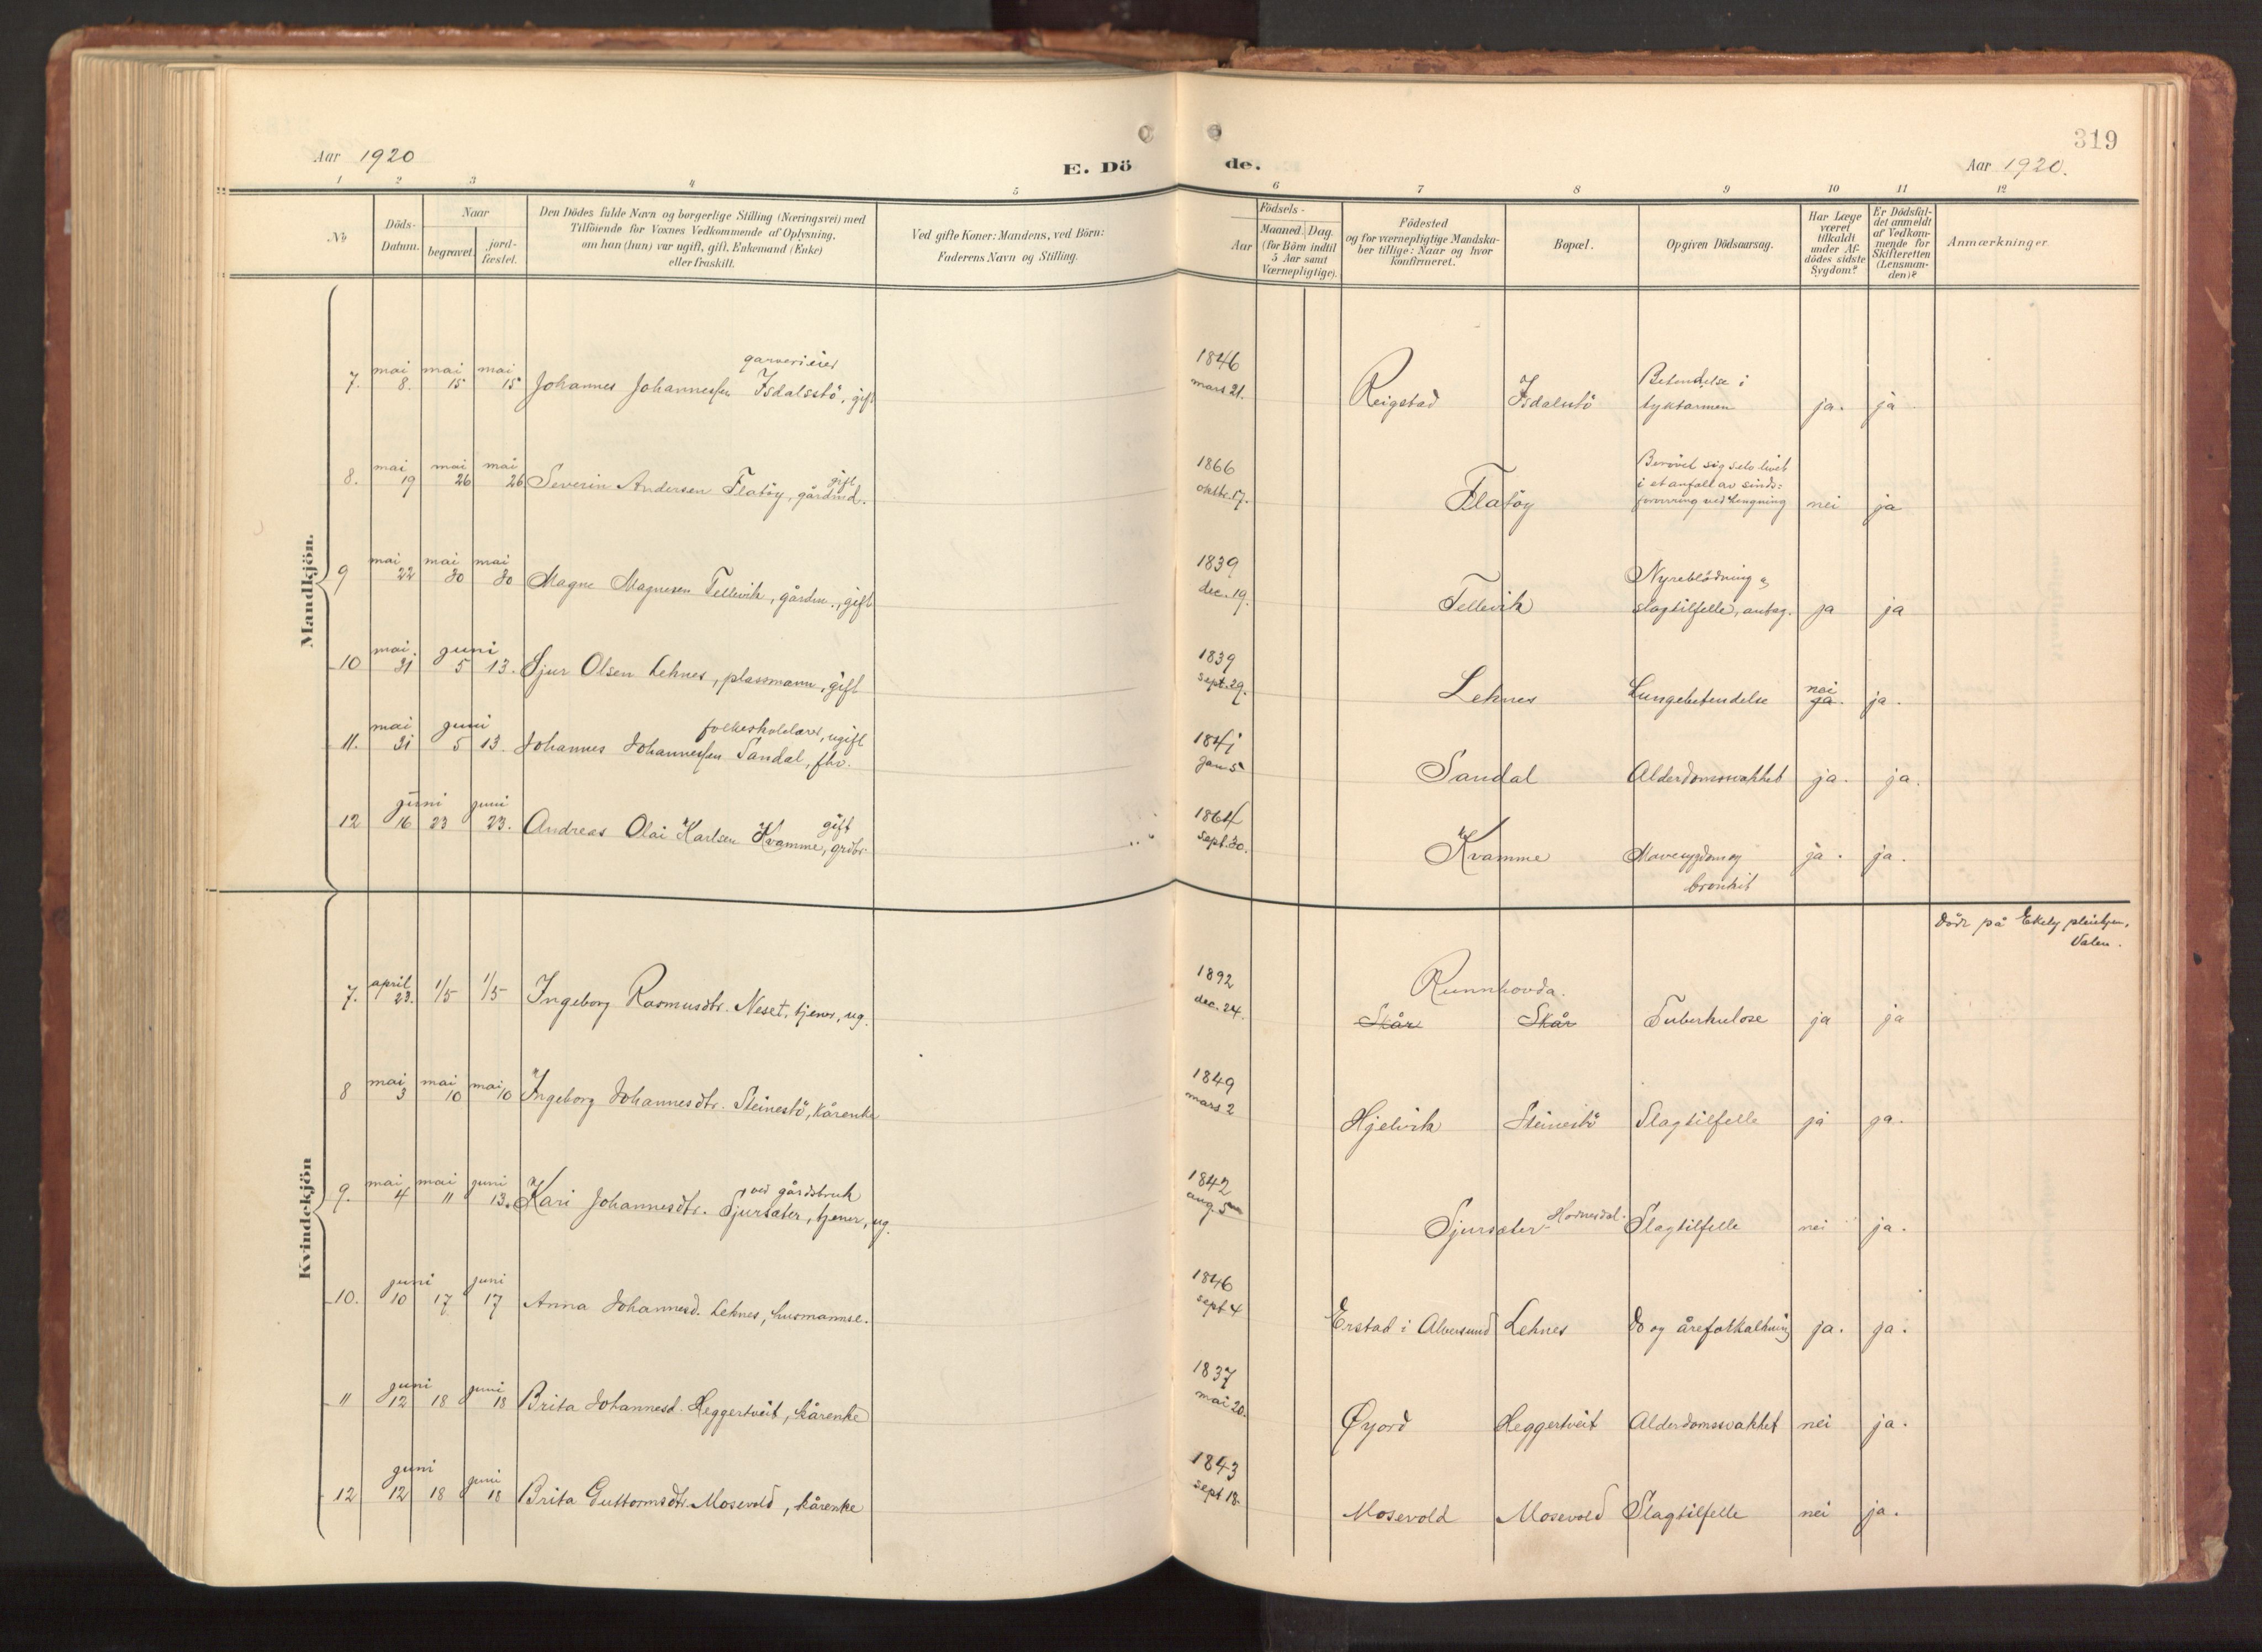 319
Aar 1920
E. Dö de.
Aar 1920.
1 2 3 4 5 6 7 8 9 10 11 12
No
Döds-Datum.
Naar
begravet.
jord-fæstet.
Den Dödes fulde Navn og borgerlige Stilling (Næringsvei) med
Tilföiende for Voxnes Vedkommende af Oplysning,
om han (hun) var ugift, gift, Enkemand (Enke)
eller fraskilt.
Ved gifte Koner: Mandens, ved Börn:
Faderens Navn og Stilling.
Födsels-
Aar
Maaned. Dag.
(for Börn indtil
5 Aar samt
Værnepligtige).
Födested
og for værnepligtige Mandska-
ber tillige: Naar og hvor
konfirmeret.
Bopæl.
Opgiven Dödsaarsag.
Har Læge
været
tilkaldt
under Af-
dödes sidste
Sygdom?
Er Dödsfal-
det anmeldt
af Vedkom-
mende for
Skifteretten
(Lensman-
den)?
Anmærkninger.
Mandkjön.
garverieier
7. mai 8. mai 15 mai 15 Johannes Johannessen Isdalsstö, gift 1846 mars 21. Reigstad Isdalstö Betendelse i tyktarmen ja. ja
8. mai 19 mai 26 mai 26 Severin Andersen Flatöy, gårdmd. gift 1866 oktbr. 17. Flatöy Berövet sig selv livet
i et anfall av sinds-
forvirring ved hengning nei ja
9 mai 22 mai 30 mai 30 Magne Magnesen Tellevik, gårdm., gift 1839 dec. 19. Tellevik Nyreblödning og
slagtilfelle, antag. ja ja
10 mai 31 juni 5 13. Sjur Olsen Leknes, plassmann, gift 1839 sept. 29. Leknes Lungebetendelse nei ja. ja.
folkeskolelærer, ugift
11. mai 31 juni 5 13. Johannes Johannessen Sandal, fhv. 1841 jan 5 Sandal Alderdomssvakhet ja. ja.
12 juni 16 23 juni 23. Andreas Olai Karlsen Kvamme, grdbr. gift 1864 sept. 30. Kvamme Mavesygdom og
bronkit ja. ja.
Kvindekjön
Död på Ekely pleiehjem,
Valen.
7. april 23. 1/5 1/5 Ingeborg Rasmusdtr. Neset, tjener, ug. 1892 dec. 24. Runnhovda. Skår Skår Tuberkulose ja ja
8 mai 3 mai 10 mai 10 Ingeborg Johannesdtr. Steinestö, kårenke 1849 mars 2 Hjelvik Steinestö Slagtilfelle ja ja.
ved gårdsbruk
9. mai 4 mai 11 juni 13. Kari Johannesdtr. Sjursæter, tjener, ug. 1842 aug. 5 Sjursæter - Hodnesdal. Slagtilfelle nei ja.
10. juni 10 17 juni 17 Anna Johannesd. Leknes, husmannse. 1846 sept. 4 Erstad i Alversund Leknes Do og åreforkalkning ja. ja.
11 juni 12 18 juni 18 Brita Johannesd. Heggertveit, kårenke 1837 mai 20. Øyjord Heggertveit Alderdomssvakhet nei ja.
12 juni 12 18 juni 18 Brita Guttormsdtr. Mosevold, kårenke 1843 sept 18. Mosevold Mosevold Slagtilfelle nei ja.